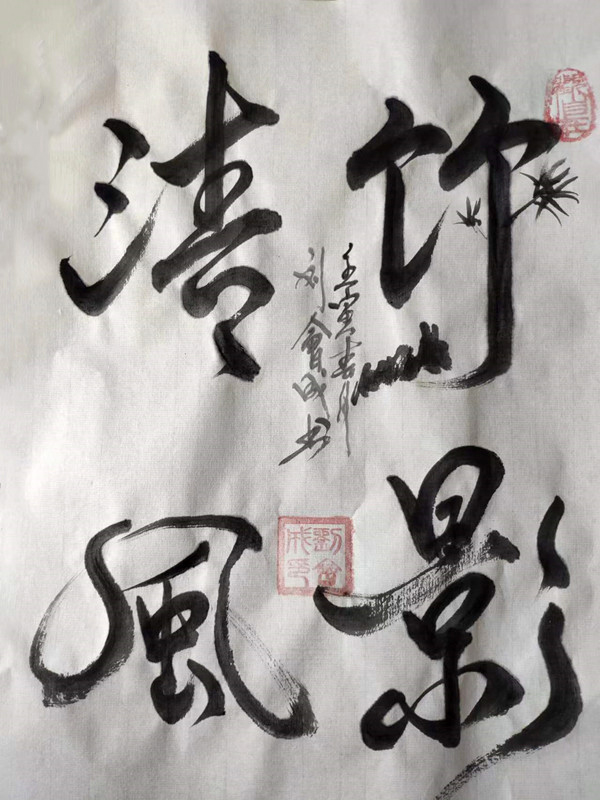 竹影
清風
壬寅春月
刘會成书
劉會成印